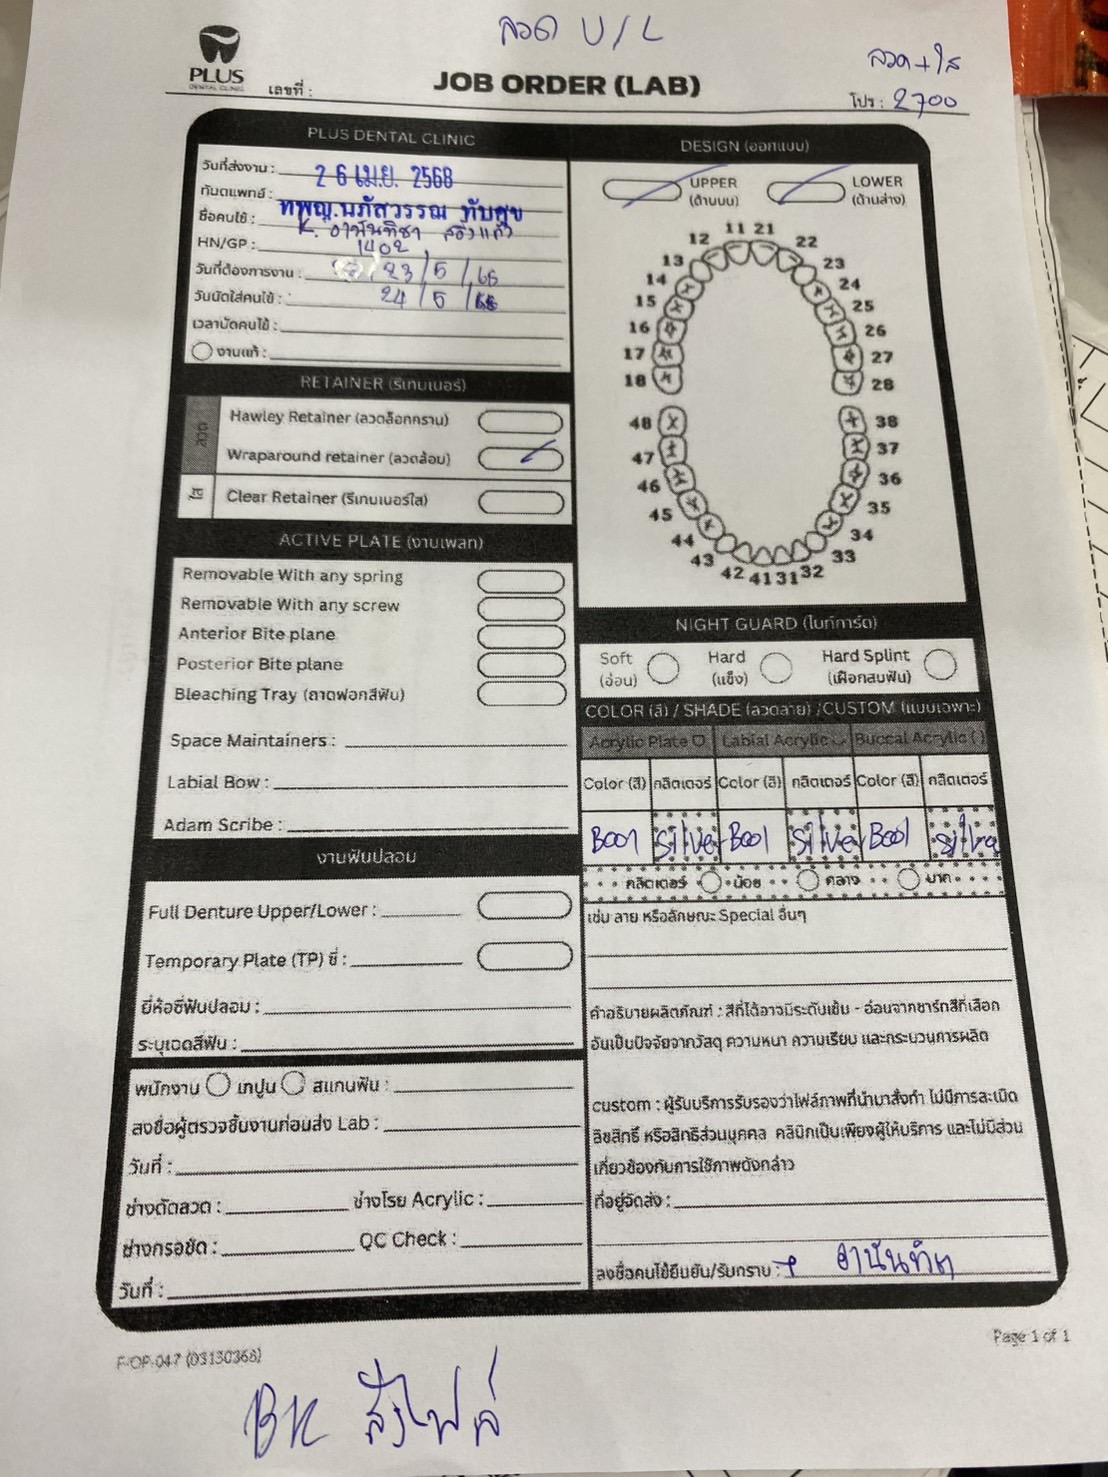 ลวด U/L
ลวด+ใส
PLUS
DENTAL CLINIC
เลขที่ :
JOB ORDER (LAB)
โปร : 2700
PLUS DENTAL CLINIC
วันที่ส่งงาน : 26 เม.ย. 2568
ทันตแพทย์ : ทพญ.นภัสวรรณ ทับศุข
ชื่อคนไข้ : K. อานันทิชา
HN/GP : 1402
วันที่ต้องการงาน : 23/5/68
วันนัดใส่คนไข้ : 24/5/68
เวลานัดคนไข้ :
งานแก้ :
RETAINER (รีเทนเนอร์)
ลวด
Hawley Retainer (ลวดล็อกกราม)
Wraparound retainer (ลวดล้อม)
ใส
Clear Retainer (รีเทนเนอร์ใส)
ACTIVE PLATE (งานเพลท)
Removable With any spring
Removable With any screw
Anterior Bite plane
Posterior Bite plane
Bleaching Tray (ถาดฟอกสีฟัน)
Space Maintainers :
Labial Bow :
Adam Scribe :
งานฟันปลอม
Full Denture Upper/Lower :
Temporary Plate (TP) ซี่ :
ยี่ห้อซี่ฟันปลอม :
ระบุเฉดสีฟัน :
พนักงาน เทปูน สแกนฟัน :
ลงชื่อผู้ตรวจชิ้นงานก่อนส่ง Lab :
วันที่ :
ช่างดัดลวด : ช่างโรย Acrylic :
ช่างกรอขัด : QC Check :
วันที่ :
DESIGN (ออกแบบ)
UPPER (ด้านบน) LOWER (ด้านล่าง)
11 21
12 22
13 23
14 24
15 25
16 26
17 27
18 28
48 38
47 37
46 36
45 35
44 34
43 33
42 41 31 32
NIGHT GUARD (ไนท์การ์ด)
Soft (อ่อน) Hard (แข็ง) Hard Splint (เฝือกสบฟัน)
COLOR (สี) / SHADE (ลวดลาย) /CUSTOM (แบบเฉพาะ)
Acrylic Plate Labial Acrylic Buccal Acrylic ( )
Color (สี) กลิตเตอร์ Color (สี) กลิตเตอร์ Color (สี) กลิตเตอร์
B001 Silver B001 Silver B001 Silver
กลิตเตอร์ น้อย กลาง มาก
เช่น ลาย หรือลักษณะ Special อื่นๆ
คำอธิบายผลิตภัณฑ์ : สีที่ได้อาจมีระดับเข้ม - อ่อนจากชาร์ทสีที่เลือก
อันเป็นปัจจัยจากวัสดุ ความหนา ความเรียบ และกระบวนการผลิต
custom : ผู้รับบริการรับรองว่าไฟล์ภาพที่นำมาสั่งทำ ไม่มีการละเมิด
ลิขสิทธิ์ หรือสิทธิส่วนบุคคล คลินิกเป็นเพียงผู้ให้บริการ และไม่มีส่วน
เกี่ยวข้องกับการใช้ภาพดังกล่าว
ที่อยู่จัดส่ง :
ลงชื่อคนไข้ยืนยัน/รับทราบ :
Page 1 of 1
F-OP-047 (03130368)
BK ส่งไฟล์